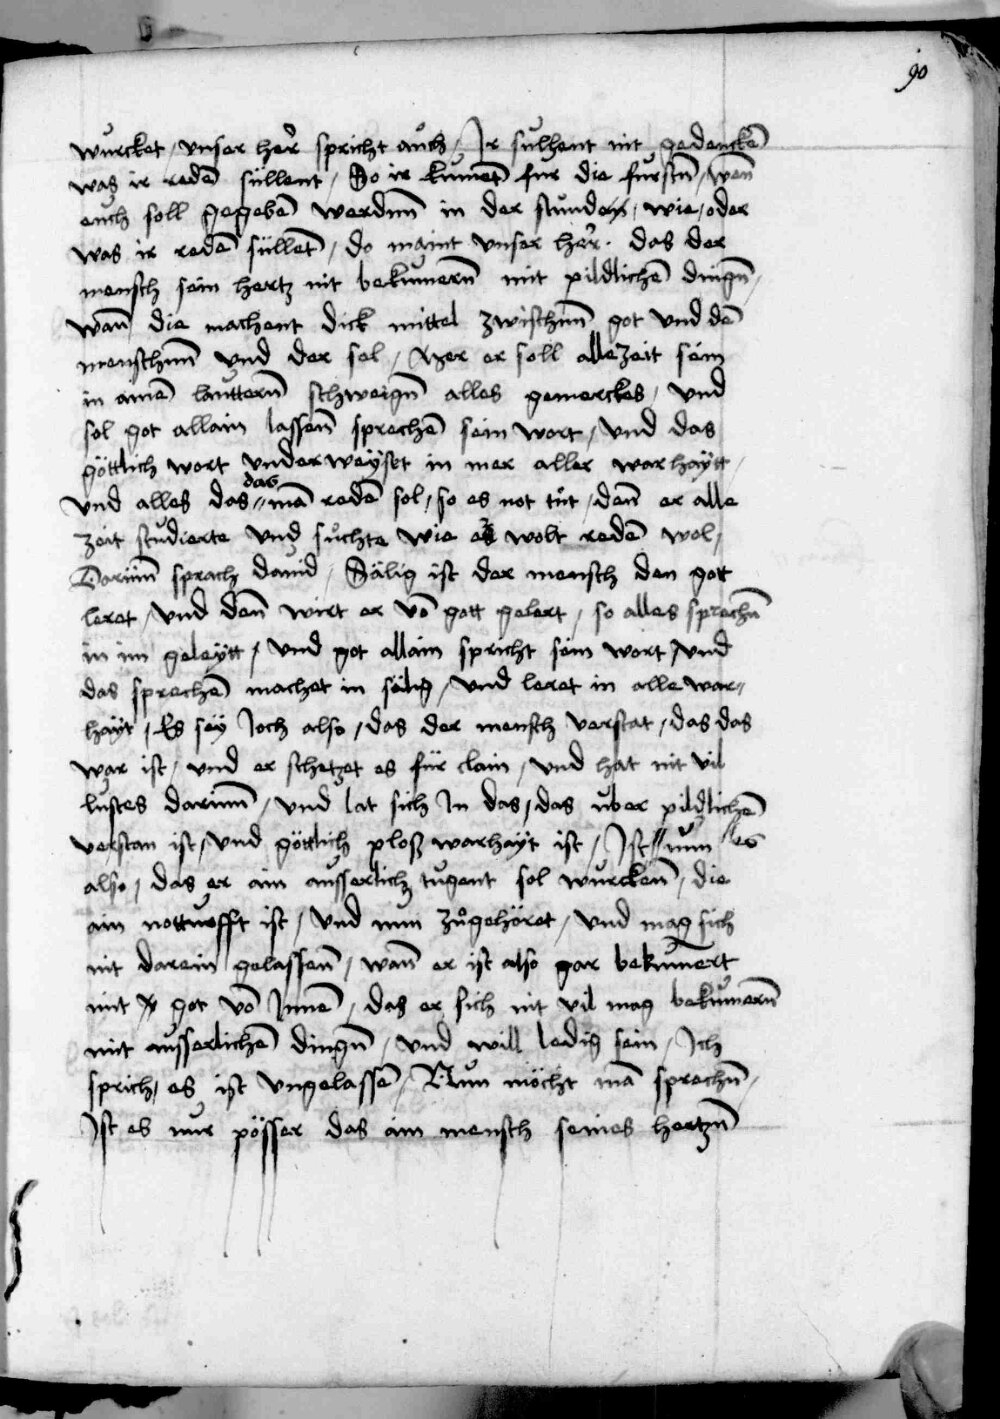 90
wurcket / vnser her̃ spricht aůch / Ir sulhent nit gedenckē
was ir redē süllent / So ir kumēt fur die furstn̄ / wan̄
euch soll gegebē werdnn in der stunden / wie / oder
was ir redē süllet / do maint vnser her̃ . das der
mensch sein hertz nit bekumern̄ mit pildlichē dingn̄ /
wan̄ die machent dick mittel zwischnn got vnd dē
menschnn vnd der sel / Aber er soll allezeit sein
in ainē lauttern̄ schweign̄ alles gemerckes / vnd
sol got allain lassen̄ sprechē sein wort / vnd das
göttlich wort vnderweÿset in mer aller warhaÿtt /
vnd alles das das mā redē sol / so es not tůt / den̄ er alle
zeit studierte vnd sůchte wie er wolt redē wol /
Darum̄ sprach dauid / Sälig ist der mensch den gott
leret / vnd den̄ wirt er vō gott gelert / so alles sprechn̄
in im geleÿtt / vnd got allain spricht sein wort / vnd
das sprechē machet in sälig / vnd leret in alle war//
haÿt / Es seÿ Joch also / das der mensch verstat / das das
war ist / vnd er schetzet es für clain / vnd hat nit vil
lustes darinn / vnd lat sich In das / das uber pildlichē
verstan ist / vnd göttlich ploß warhaÿt ist / Ist // nun // es
also / das er ain ausserlich tugent sol wurcken̄ / die
ain notturfft ist / vnd nun zůgehöret / vnd mag sich
nit darein gelassen̄ / wan̄ er ist also gar bekum̄ert
mit got vō Innē / das er sich nit vil mag bekum̄ern̄
mit ausserlichē dingn̄ / vnd will ledig sein / Ich
sprich / es ist vngelassē / Nun möcht mā sprechn̄ /
Ist es nur pösser das ain mensch seines hertzn̄